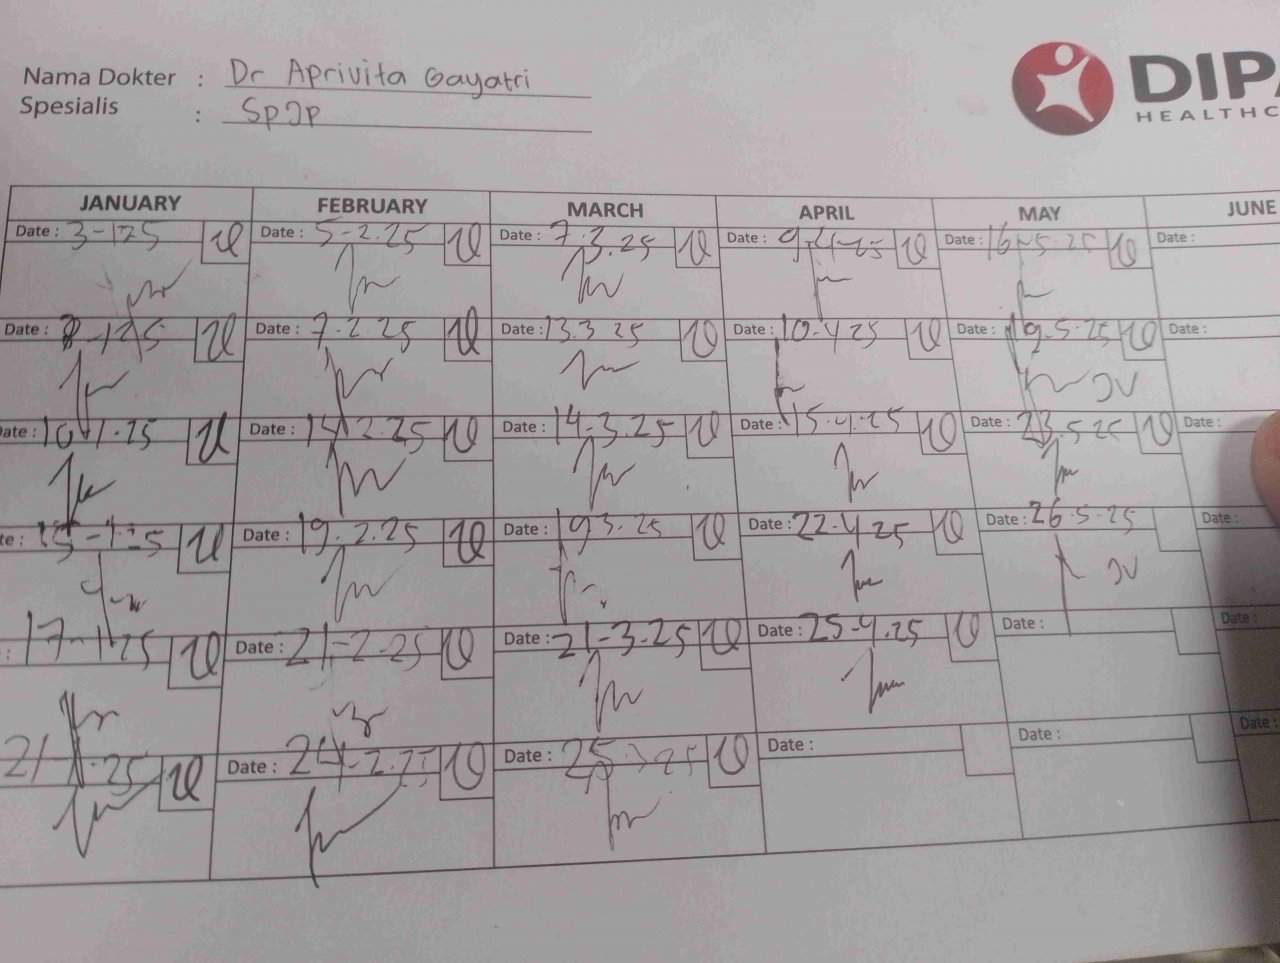 Nama Dokter : Dr Aprivita Gayatri
Spesialis : SpJp
DIPA
HEALTHC
JANUARY FEBRUARY MARCH APRIL MAY JUNE
Date : 3-1-25 Date : 5-2.25 Date : 7.3.25 Date : 9-4-25 Date : 16-5-25 Date :
Date : 8-1-25 Date : 7-2.25 Date : 13.3.25 Date : 10-4.25 Date : 19-5-25 Date :
JV
ate : 10-1-25 Date : 14.2.25 Date : 14-3.25 Date : 15.4.25 Date : 23.5.25 Date :
te : 15-1-25 Date : 19.2.25 Date : 19.3.25 Date : 22-4.25 Date : 26.5-25 Date :
JV
: 17-1-25 Date : 21-2-25 Date : 21-3-25 Date : 25-4.25 Date : Date :
21-1.25 Date : 24-2.25 Date : 25.3.25 Date : Date : Date :